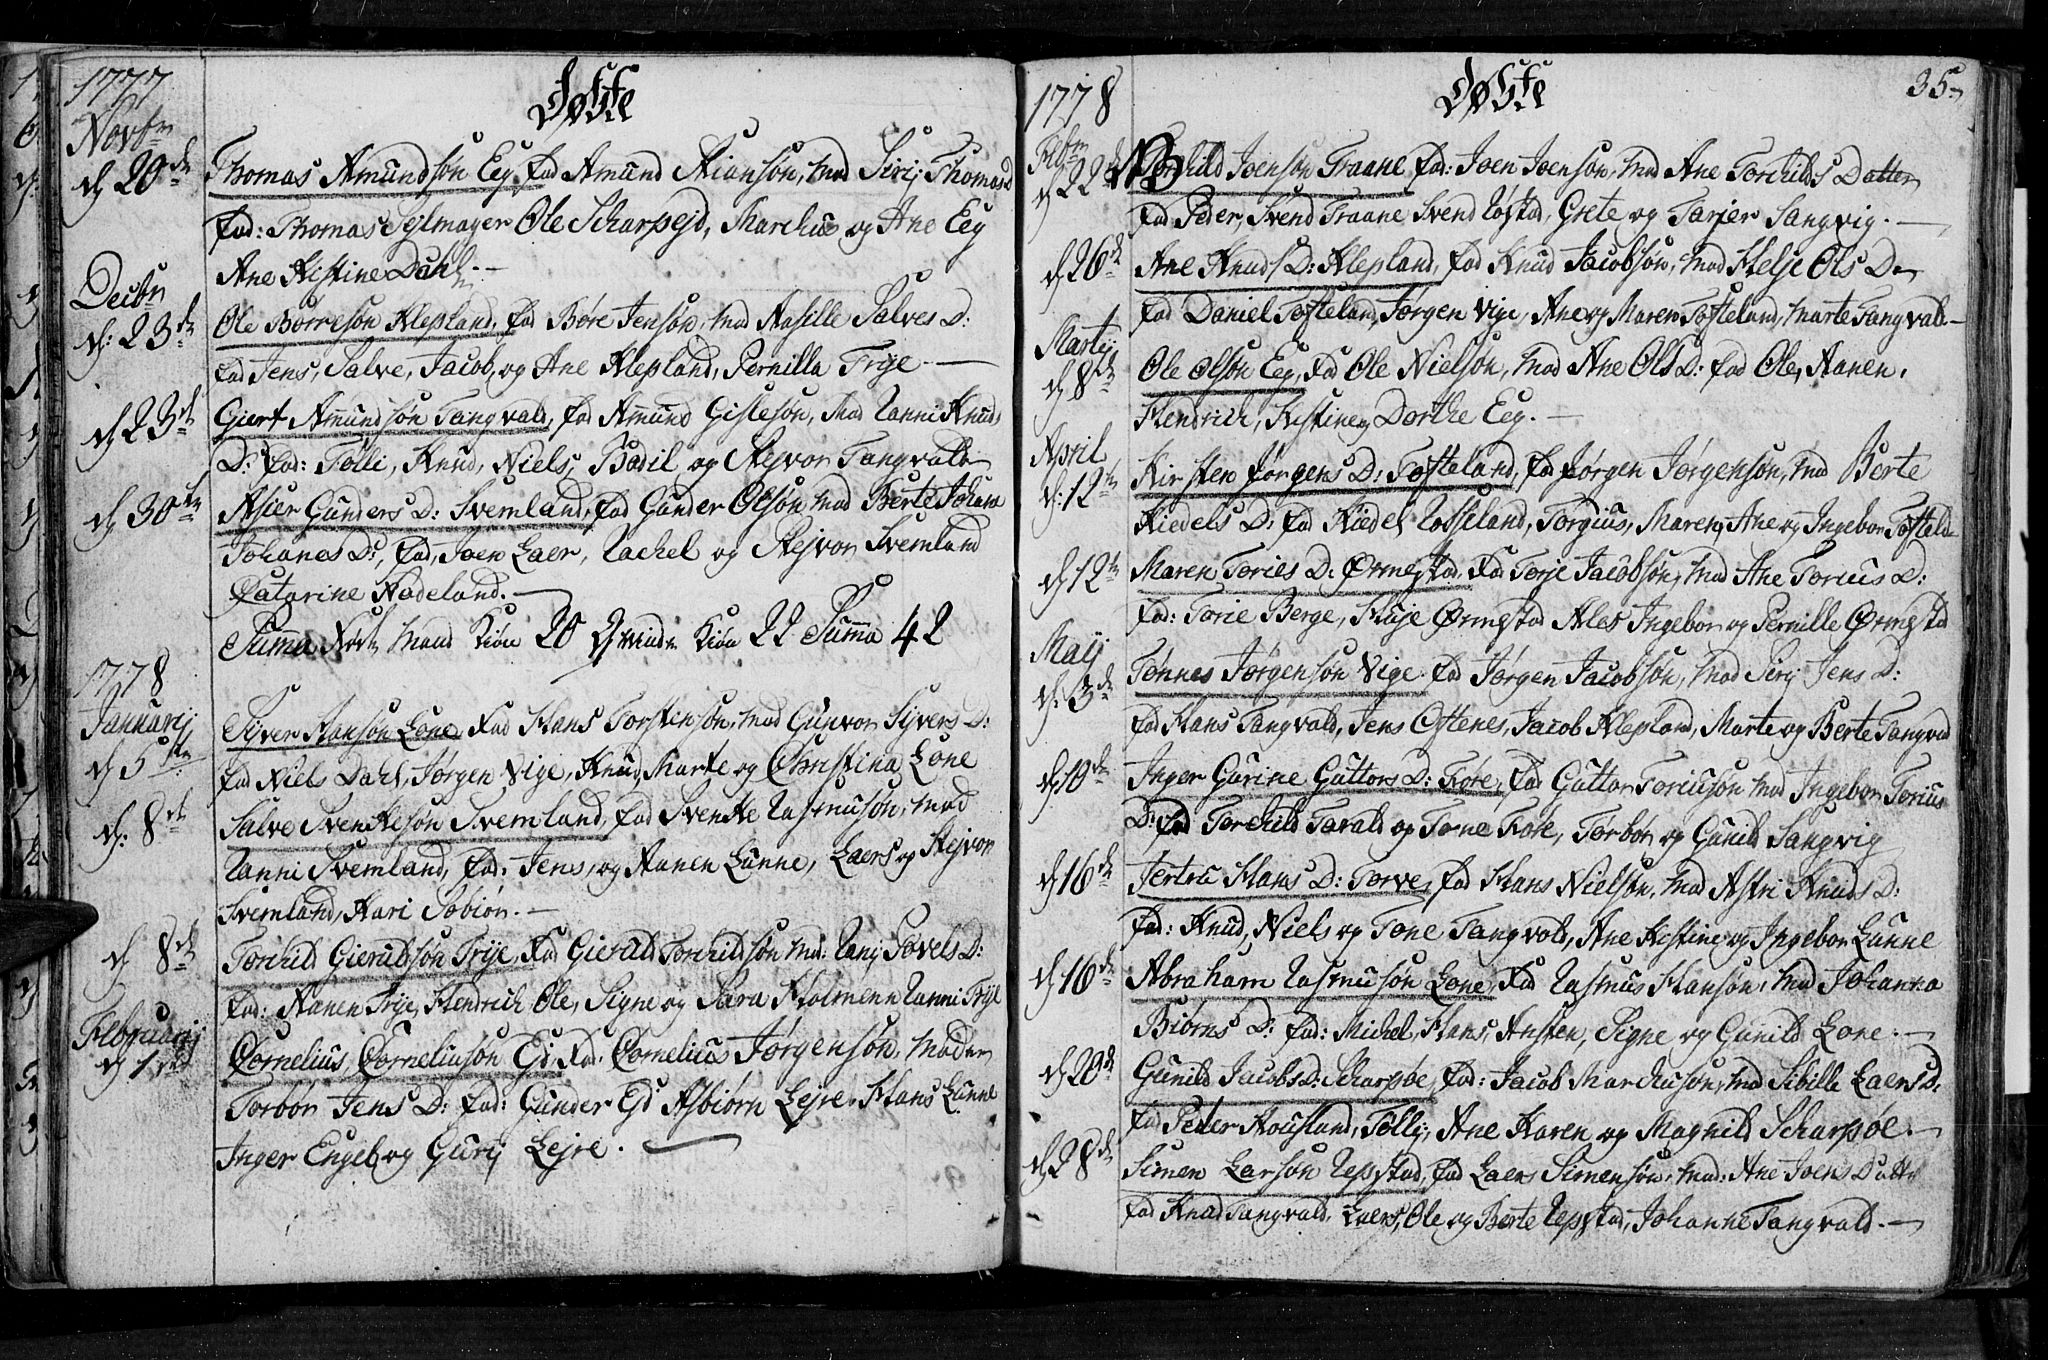 1777
Døbte
Novbr
d 20de Thomas Amundsøn Eeg, fad Amund Aianson, mod Sirij Thomasd
fad: Thomas Sejlmager Ole Scharpejd, Marchus og Ane Eeg
Ane Kistine Dahl. —
Decbr
d: 23de Ole Børreson Klepland, fad Børe Jensøn, mod Aasille Salves D:
fad Jens, Salve, Jacob, og Ane Klepland, Pernilla Frye. —
d 23de Giert Amundsøn Tangvald, fad Amund Gislesøn, Mod Ranni Knuds
D: fad: Tolli, Knud, Niels, Bodil og Stejvor Tangvald
d 30te Asier Gunders D: Svemland, fad Gunder Olsøn mod Berte Johana
Johanes D:, fad, Joen Laer, Rachel og Stejvor Svemland
Catarine Nodeland. —
Suma Mand Kiøn 20 Qvinde Kiøn 22 Suma 42
1778
Januarij
d 5te Syver Hansøn Lone, Fad Hans Torstensøn, mod Gunvor Syvers D:
fad Niels Dahl, Jørgen Vige, Knud, Marte og Christina Lone
d: 8de Salve Svenkesøn Svemland, fad Svenke Rasmusøn, mod
Ranni Svemland, fad: Jens, og Aanen Lunne, Laers og Stejvor
Svemland, Kari Søbiør. —
d 8de Torchild Gieruldsøn Trye, Fad Gieruld Torchildsøn Mod: Rany Povels D:
fad: Aanen Trye, Hendrich Ole, Signe og Sara Holmenn Ranni Trye
Februarij
d 1de Cornelius Corneliusøn Egd Fad: Cornelius Jørgensøn, moder
Torbor Jens D: fad: Gunder Egd Asbiørn Lejre, Hans Lunne
Inger Engeb og Gurij Lejre. —
1778
Døbte
35
Febr
d 22de Torchild Joensøn Traane, fad: Joen Joensøn, Mod Ane Torchilds Datter
fad Peder, Svend Traane Svend Røstad, Grete og Tarjer Sangvig. —
d 26de Ane Knuds D: Klepland, fad Knud Jacobsøn, mod Helje Ols Dr
fad Daniel Tofteland, Jørgen Vige, Ane og Maren Tofteland, Marte Tangvald —
Martij
d 8de Ole Olsøn Eeg, Fad Ole Nielsøn, mod Ane Ols D: fad Ole, Aanen,
Hendrich, Kistine og Dorthe Eeg. —
April
d: 12te Kirsten Jørgens D: Tofteland, fad Jørgen Jørgensøn, mod Berte
Kiedels D: fad Kiedel Rosseland, Torgius, Maren, Ane og Ingebor Tofteld
d 12te Maren Tories D: Ørmestad, Fad Torje Jacobsøn, mod Ane Torius D:
fad: Torie Berge, Huje Ørmstad Ales Ingebor og Pernille Ørmstd
Maij
d: 3de Tønnes Jørgensøn Vige fad Jørgen Jacobsøn, mod Sirij Jens D:
fad Hans Tangvald, Jens Oftenes, Jacob Klepland, Marte og Berte Tangvad
d: 10de Inger Gurine Guttors D: Fore, fad Guttor Toriusøn mod Ingebor Torius
D: fad Torchild Torald og Torne Fore, Torbor og Gunild Sangvig
d 16de Jertru Hans D: Torve, fad Hans Nielsøn, mod Astri Knuds D:
fad: Knud, Niels og Tone Tangvold, Ane Kistine og Ingebor Lunne
d 16de Abraham Rasmusøn Lone, Fad Rasmus Hansøn, mod Johanna
Biørns D: fad: Michel, Hans, Ansten, Signe og Gunild Lone. —
d 20de Gunild Jacobs D: Scharpøe, fad: Jacob Marchusøn, mod Sibille Laers D:
fad Peter Housland, Tolly, Ane Karen og Magnild Scharpøe. —
d 28de Simen Larsøn Repstad, fad Laers Simensøn, mod: Ane Joens Datt
fad Knud Tangvald, Laers, Ole og Berte Repstad, Johanne Tangvald. —